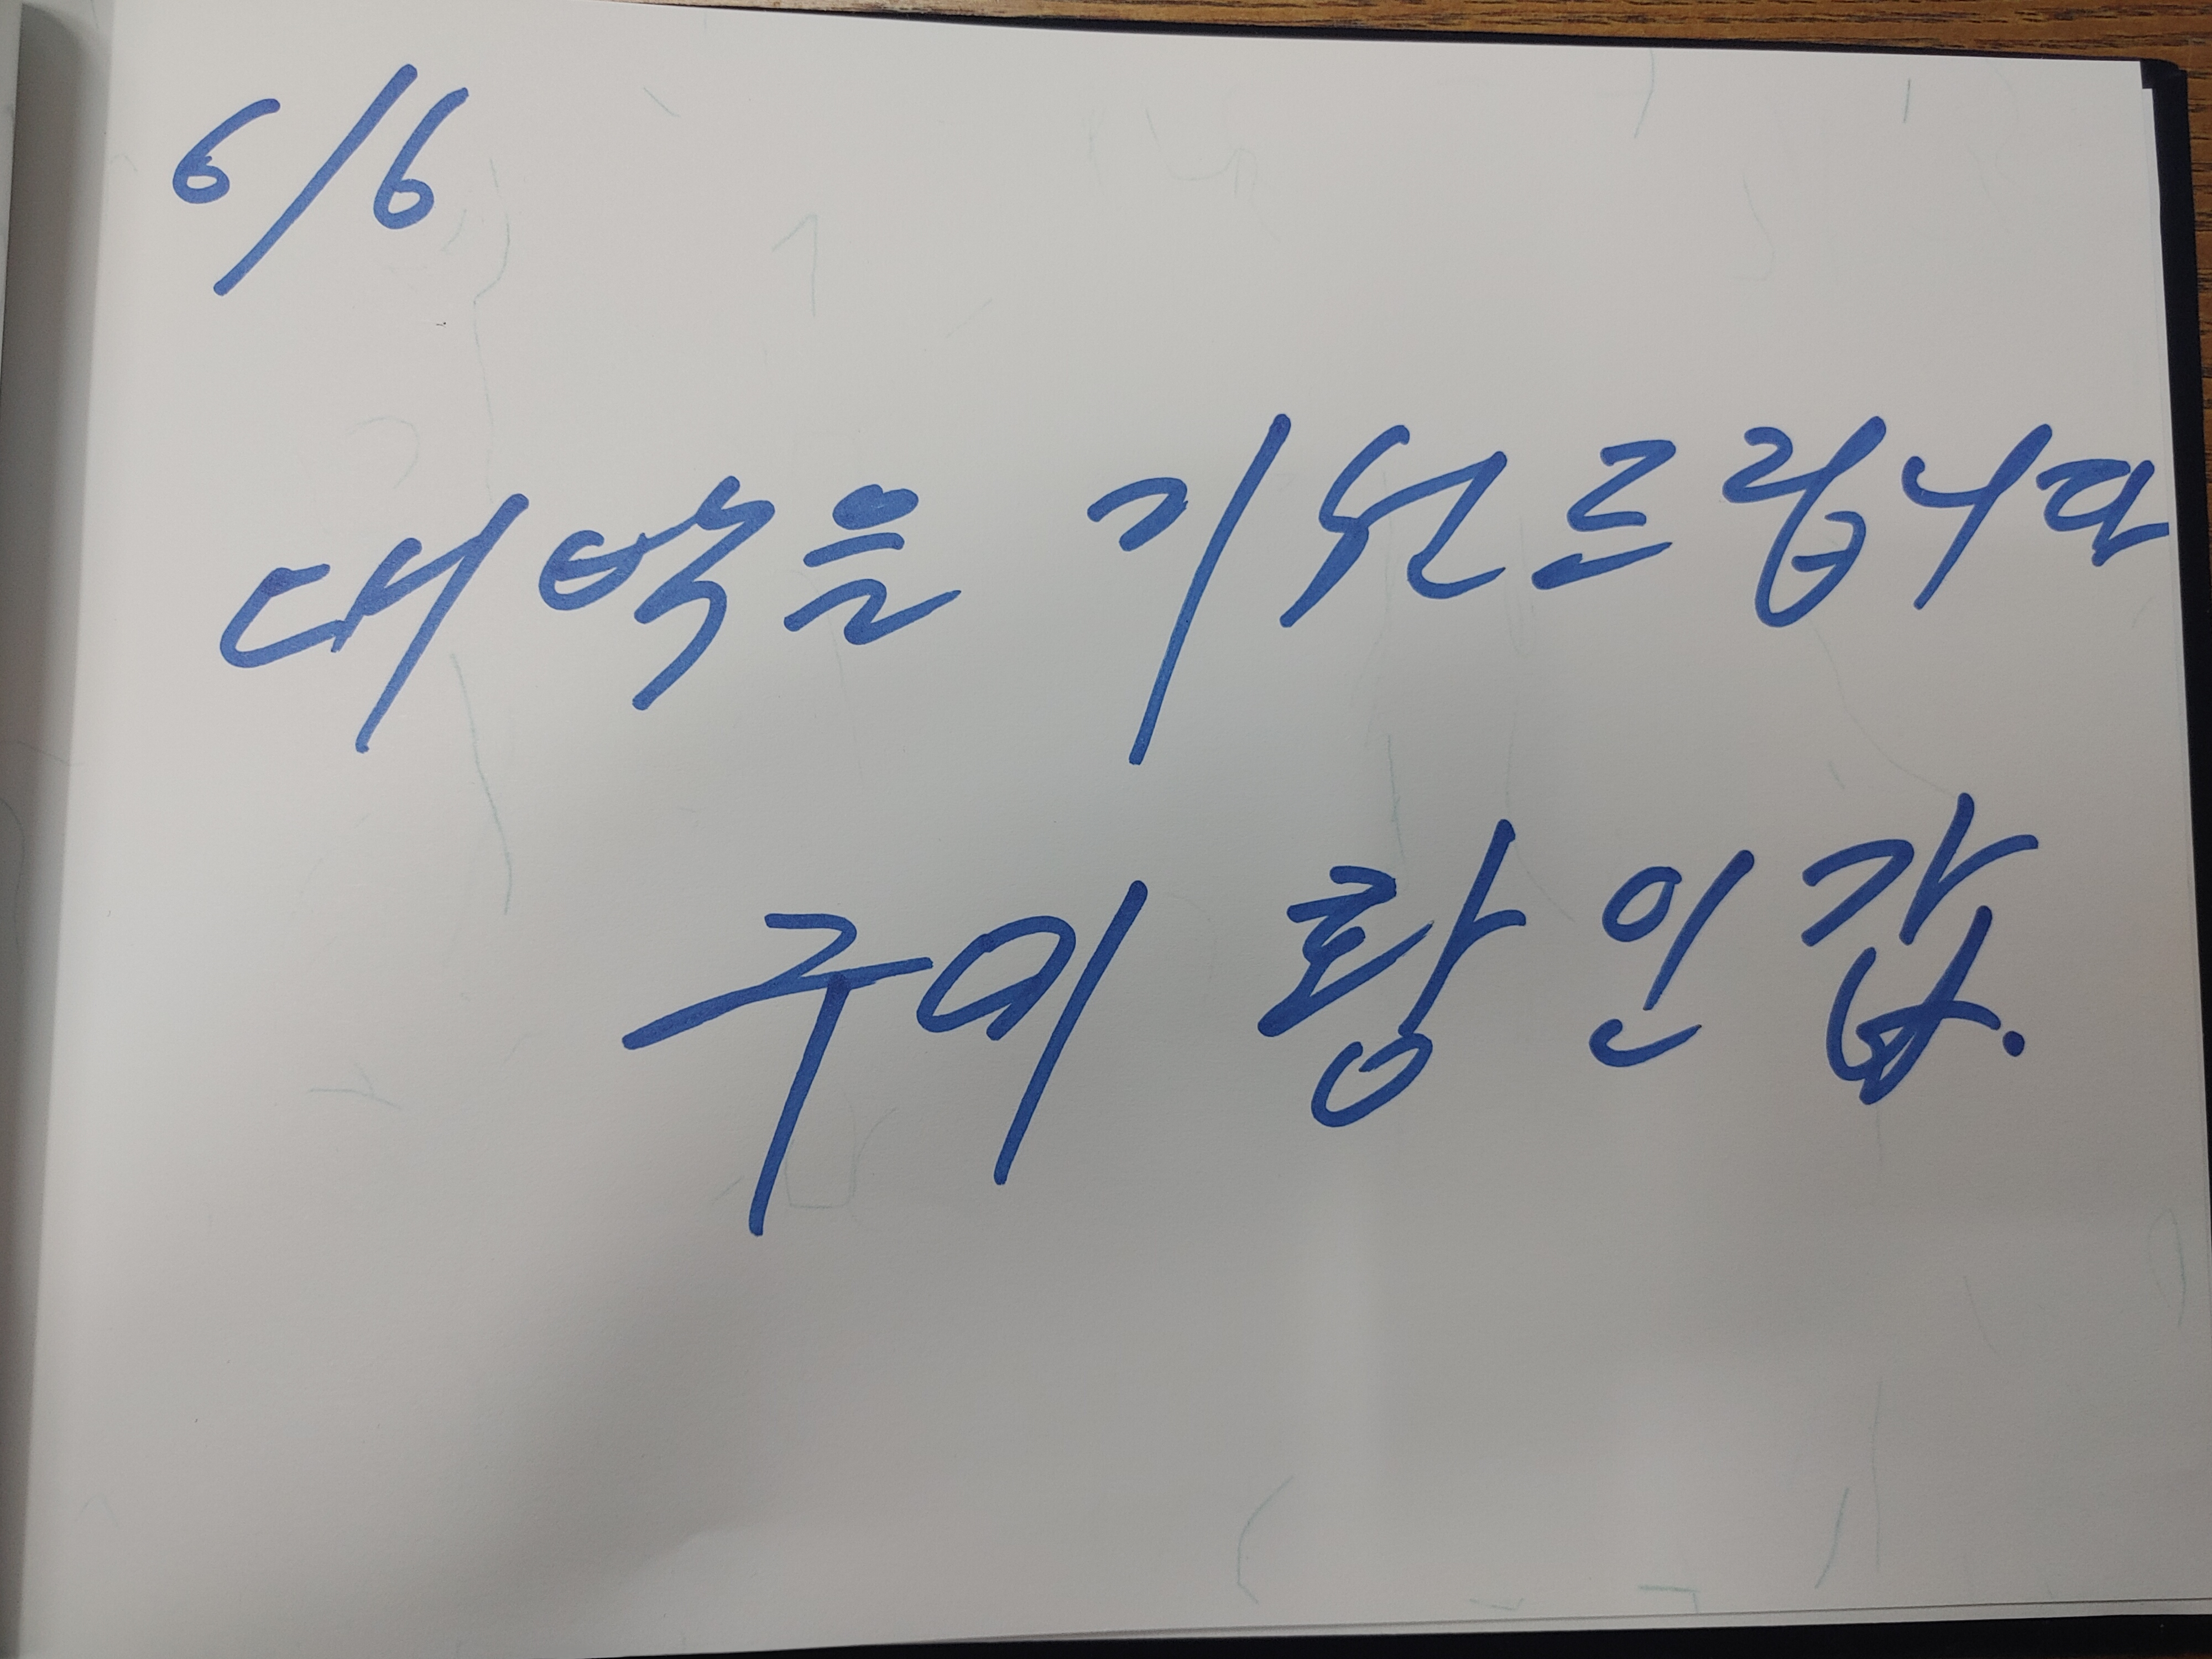 6/6
대박을 기원드립니다
구미 황인갑.